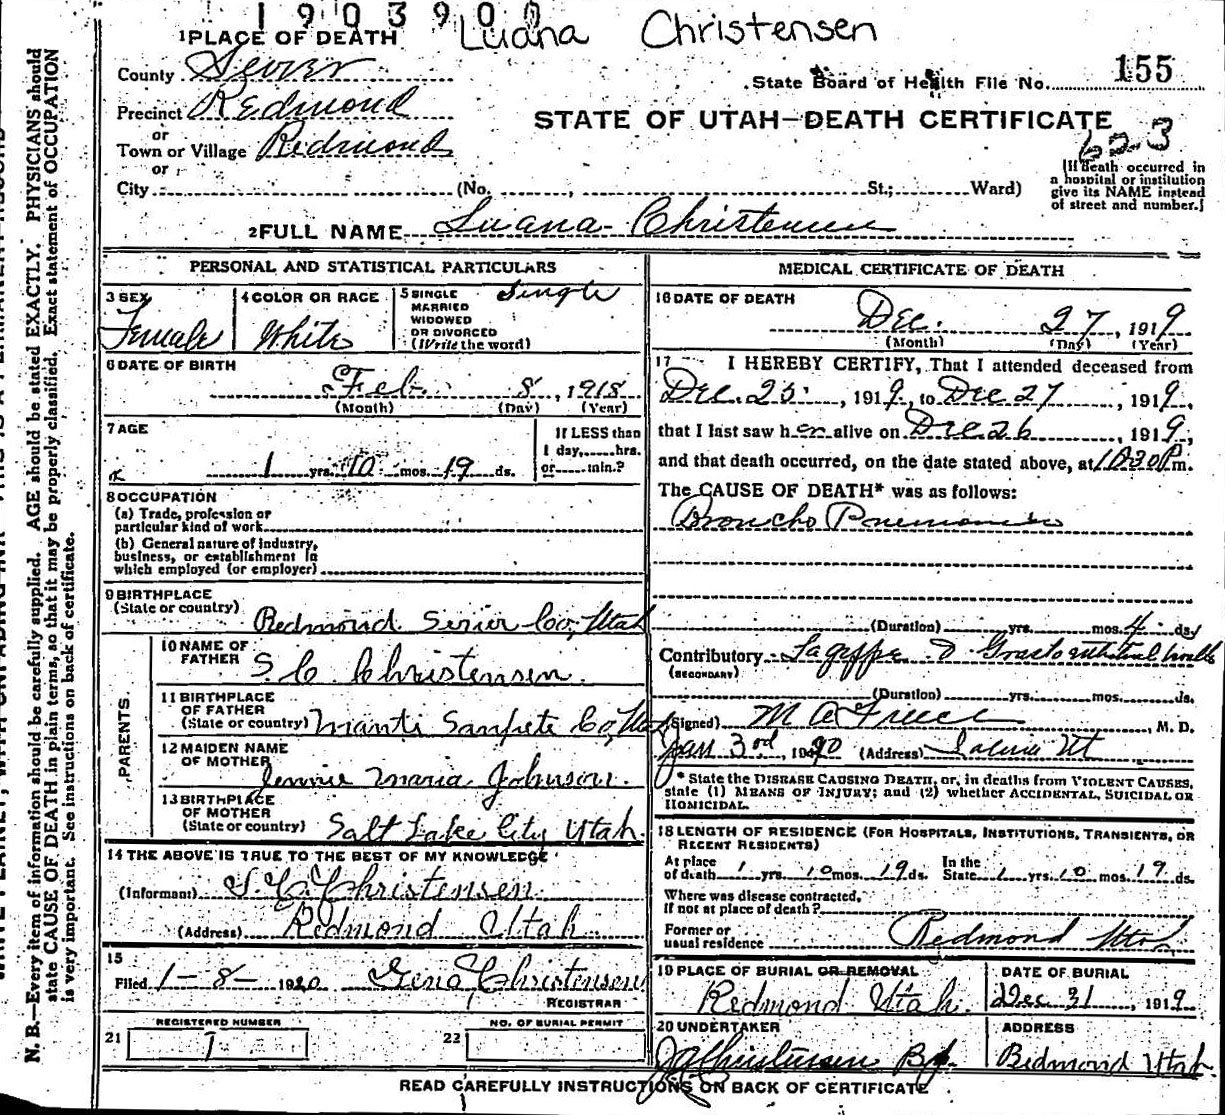 1903900
Luana Christensen
1 PLACE OF DEATH
County Sevier
State Board of Health File No. 155
Precinct Redmond
STATE OF UTAH—DEATH CERTIFICATE
or
Town or Village Redmond
623
or
City (No. , St.; Ward)
[If death occurred in
a hospital or institution
give its NAME instead
of street and number.]
2 FULL NAME Luana Christensen
PERSONAL AND STATISTICAL PARTICULARS
3 SEX
Female
4 COLOR OR RACE
White
5 SINGLE
MARRIED
WIDOWED
OR DIVORCED
(Write the word)
Single
6 DATE OF BIRTH
Feb. 8, 1918
(Month) (Day) (Year)
7 AGE
1 yrs. 10 mos. 19 ds.
If LESS than
1 day,......hrs.
or......min.?
8 OCCUPATION
(a) Trade, profession or
particular kind of work
(b) General nature of industry,
business, or establishment in
which employed (or employer)
9 BIRTHPLACE
(State or country)
Redmond Sevier Co, Utah
PARENTS
10 NAME OF
FATHER
S. C. Christensen.
11 BIRTHPLACE
OF FATHER
(State or country) Manti Sanpete Co, Utah
12 MAIDEN NAME
OF MOTHER
Jennie Maria Johnson.
13 BIRTHPLACE
OF MOTHER
(State or country) Salt Lake City Utah.
14 THE ABOVE IS TRUE TO THE BEST OF MY KNOWLEDGE
(Informant) S. C. Christensen
(Address) Redmond Utah
15
Filed 1-8- 1920 Gena Christensen
REGISTRAR
21 REGISTERED NUMBER
1
22 NO. OF BURIAL PERMIT
MEDICAL CERTIFICATE OF DEATH
16 DATE OF DEATH
Dec. 27, 1919
(Month) (Day) (Year)
17 I HEREBY CERTIFY, That I attended deceased from
Dec. 25, 1919, to Dec 27, 1919,
that I last saw her alive on Dec 26, 1919,
and that death occurred, on the date stated above, at 10:30 P.m.
The CAUSE OF DEATH* was as follows:
Broncho Pneumonia
(Duration) yrs. mos. 4 ds.
Contributory Lagrippe
(SECONDARY)
(Duration) yrs. mos. ds.
(Signed) , M. D.
Jan 3rd, 1920 (Address) Salina Ut
* State the DISEASE CAUSING DEATH, or, in deaths from VIOLENT CAUSES,
state (1) MEANS OF INJURY; and (2) whether ACCIDENTAL, SUICIDAL OR
HOMICIDAL.
18 LENGTH OF RESIDENCE (FOR HOSPITALS, INSTITUTIONS, TRANSIENTS, OR
RECENT RESIDENTS)
At place
of death 1 yrs. 10 mos. 19 ds. In the
State 1 yrs. 10 mos. 19 ds.
Where was disease contracted,
if not at place of death?
Former or
usual residence Redmond Utah
19 PLACE OF BURIAL OR REMOVAL
Redmond Utah.
DATE OF BURIAL
Dec 31, 1919
20 UNDERTAKER
Christensen
ADDRESS
Redmond Utah.
READ CAREFULLY INSTRUCTIONS ON BACK OF CERTIFICATE
N. B.—Every item of information should be carefully supplied. AGE should be stated EXACTLY. PHYSICIANS should
state CAUSE OF DEATH in plain terms, so that it may be properly classified. Exact statement of OCCUPATION
is very important. See instructions on back of certificate.